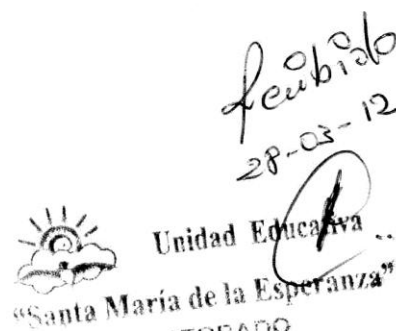 Recibido
28-03-12
Unidad Educativa
"Santa María de la Esperanza"